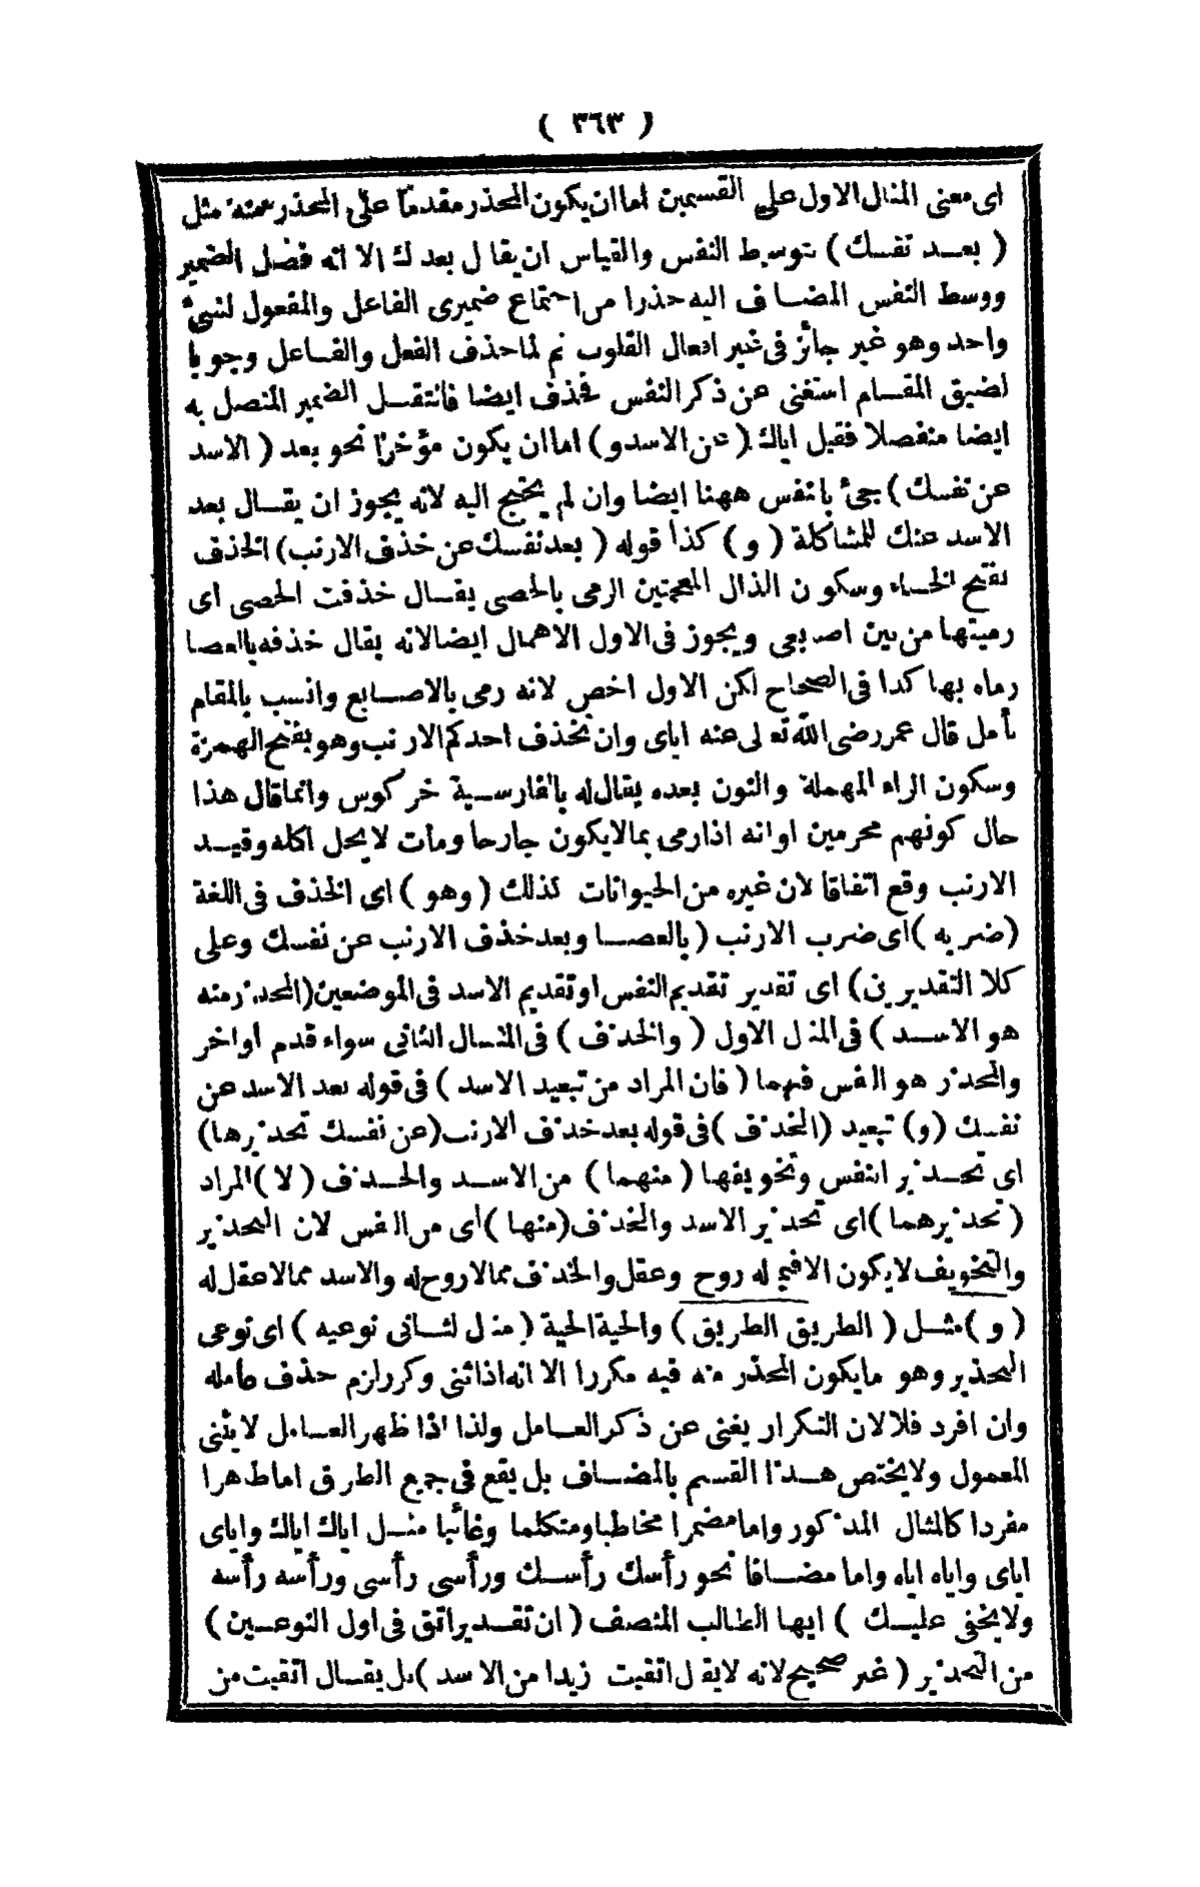 ( ٣٦٣ )
اى معنى المثال الاول على القسمين اما ان يكون المحذر مقدما على المحذر منه مثل
( بعد نفسك ) بتوسيط النفس والقياس ان يقال بعدك الا انه فصل الضمير
ووسط النفس المضاف اليه حذرا من اجتماع ضميرى الفاعل والمفعول لشئ
واحد وهو غير جائز فى غير افعال القلوب ثم لما حذف الفعل والفاعل وجوبا
لضيق المقام استغنى عن ذكر النفس فحذف ايضا فانتقل الضمير المتصل به
ايضا منفصلا فقيل اياك ( عن الاسد و ) اما ان يكون مؤخرا نحو بعد ( الاسد
عن نفسك ) جئ بالنفس ههنا ايضا وان لم يحتج اليه لانه يجوز ان يقال بعد
الاسد عنك للمشاكلة ( و ) كذا قوله ( بعد نفسك عن خذف الارنب ) الخذف
بفتح الخاء وسكون الذال المعجمتين الرمى بالحصى يقال خذفت الحصى اى
رميتها من بين اصبعى ويجوز فى الاول الاهمال ايضا لانه يقال خذفه بالعصا
رماه بها كذا فى الصحاح لكن الاول اخص لانه رمى بالاصابع وانسب بالمقام
تأمل قال عمر رضى الله تعالى عنه اياى وان يخذف احدكم الارنب وهو بفتح الهمزة
وسكون الراء المهملة والنون بعده يقال له بالفارسية خر كوس وانما قال هذا
حال كونهم محرمين او انه اذا رمى بما لا يكون جارحا ومات لا يحل اكله وقيد
الارنب وقع اتفاقا لان غيره من الحيوانات كذلك ( وهو ) اى الخذف فى اللغة
( ضربه ) اى ضرب الارنب ( بالعصا وبعد خذف الارنب عن نفسك وعلى
كلا التقديرين ) اى تقدير تقديم النفس او تقديم الاسد فى الموضعين ( المحذر منه
هو الاسد ) فى المثال الاول ( والخذف ) فى المثال الثانى سواء قدم او اخر
والمحذر هو النفس فيهما ( فان المراد من تبعيد الاسد ) فى قوله بعد الاسد عن
نفسك ( و ) تبعيد ( الخذف ) فى قوله بعد خذف الارنب ( عن نفسك تحذيرها )
اى تحذير النفس وتخويفها ( منهما ) من الاسد والخذف ( لا ) المراد
( تحذيرهما ) اى تحذير الاسد والخذف ( منها ) اى من النفس لان التحذير
والتخويف لا يكون الا فيما له روح وعقل والخذف مما لا روح له والاسد مما لا عقل له
( و ) مثل ( الطريق الطريق ) والحية الحية ( مثال لثانى نوعيه ) اى نوعى
التحذير وهو ما يكون المحذر منه فيه مكررا الا انه اذا ثنى وكرر لزم حذف عامله
وان افرد فلا لان التكرار يغنى عن ذكر العامل ولذا اذا ظهر العامل لا يثنى
المعمول ولا يختص هذا القسم بالمضاف بل يقع فى جميع الطرق اما ظاهرا
مفردا كالمثال المذكور واما مضمرا مخاطبا ومتكلما وغائبا مثل اياك اياك واياى
اياى واياه اياه واما مضافا نحو رأسك رأسك ورأسى رأسى ورأسه رأسه
ولا يخفى عليك ) ايها الطالب المنصف ( ان تقدير اتق فى اول النوعين )
من التحذير ( غير صحيح لانه لا يقال اتقيت زيدا من الاسد ) بل يقال اتقيت من